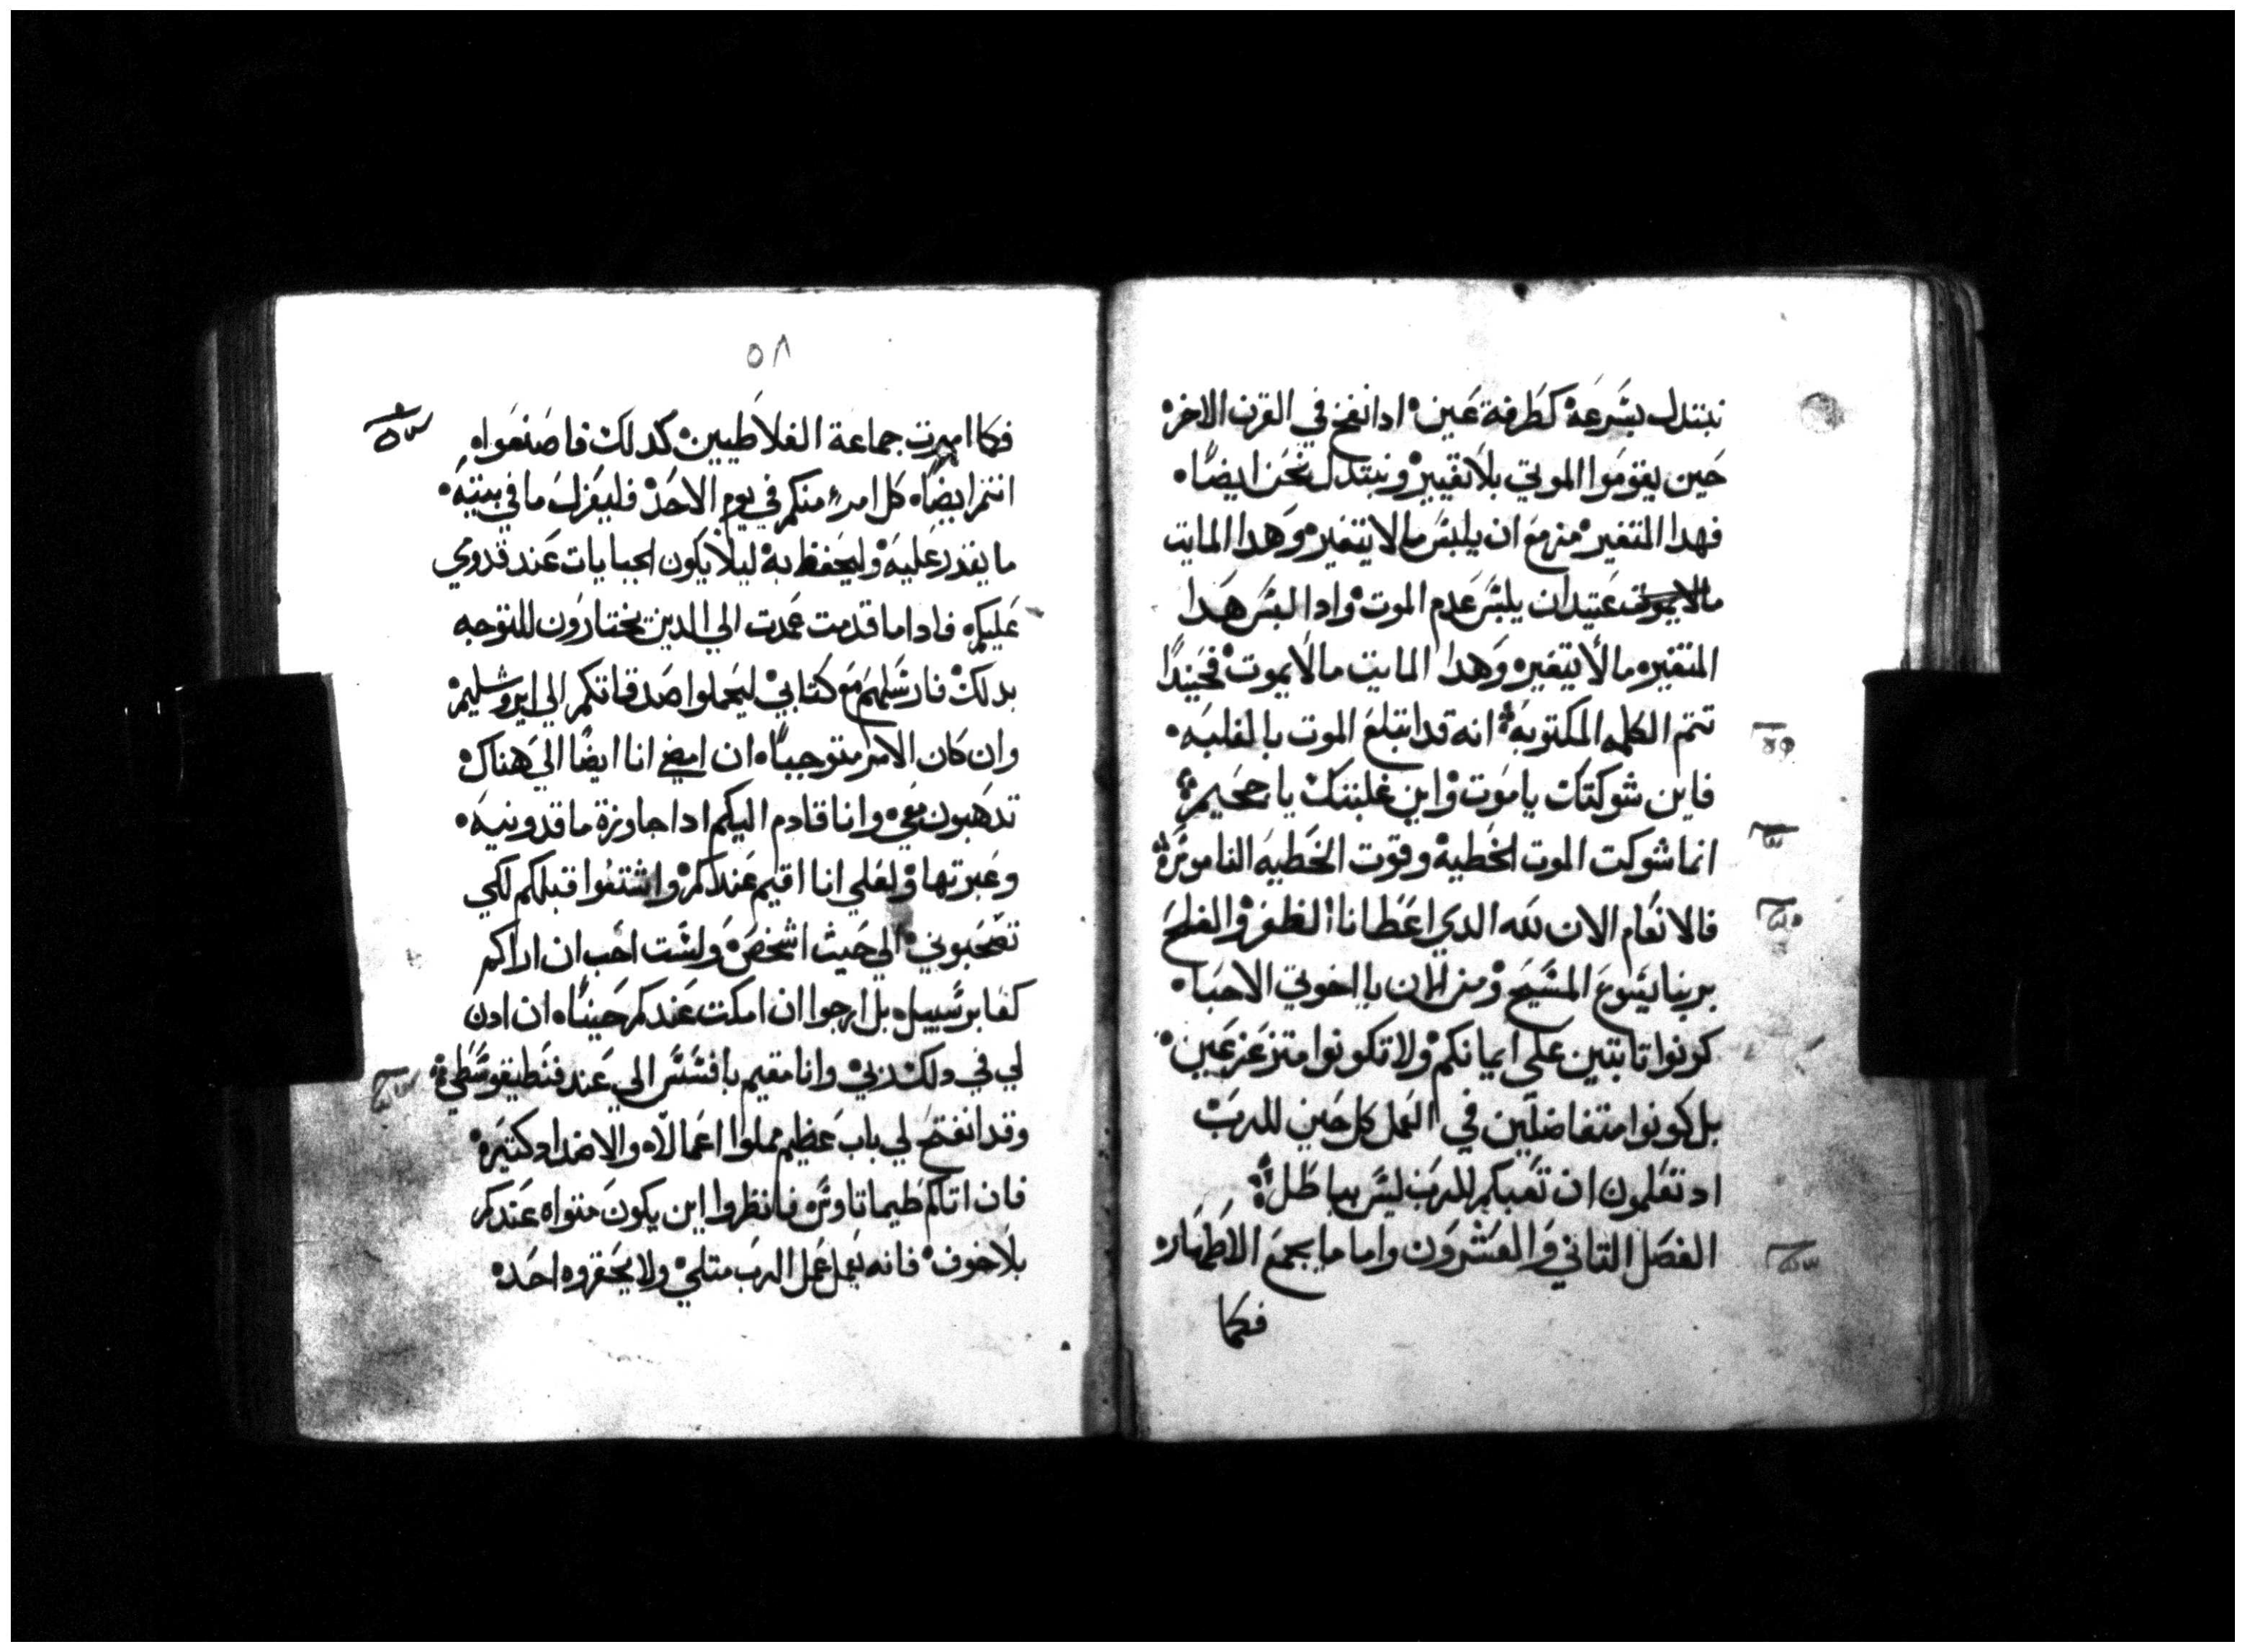 نبتدل بسرعة كطرفة عين ادا نفخ في القرن الاخر
حين يقوموا الموتي بلا تغيير ونبتدل نحن ايضًا
فهدا المتغير مزمع ان يلبس ما لا يتغير وهدا المايت
عتيد ان يلبس عدم الموت وادا لبس هدا
المتغير ما لا يتغير وهدا المايت ما لا يموت فحينيدًا
تتم الكلمه المكتوبة انه قد ابتلع الموت بالغلبه
فاين شوكتك يا موت واين غلبتك يا جحيم
انما شوكت الموت الخطية وقوت الخطيه الناموس
فالانعام الان لله الدي اعطانا الظفر والفلح
بربنا يسوع المسيح ومن الان يا اخوتي الاحبا
كونوا تابتين علي ايمانكم ولا تكونوا متزعزعين
بل كونوا متفاضلين في العمل كل حين للرب
اد تعلمون ان تعبكم للرب ليس بباطل
الفصل التاني والعشرون واما ما يجمع الاطهار
فكما
٥٨
فكما امرت جماعة الغلاطيين كدلك فاصنعوا
انتم ايضًا كل امرء منكم في يوم الاحد فليعزل ما في بيته
ما يقدر عليه وليحفظ به ليلا يكون الجبايات عند قدومي
عليكم فادا ما قدمت عمدت الي الدين تختارون للتوجه
بدلك فارسلهم مع كتابي ليحملوا صدقاتكم الي ايروشليم
وان كان الامر متوجبًا ان امضي انا ايضًا الي هناك
تدهبون معي وانا قادم اليكم ادا جاوزة ماقدونيه
وعبرتها ولعلي انا اقيم عندكم واشتفوا قبلكم لكي
تصحبوني الي حيث اشخص ولست احب ان اراكم
كعابر سبيل بل ارجوا ان امكت عندكم حينًا ان ادن
لي في دلك ربي وانا مقيم بافسس الي عند فنطيقوسطي
وقد انفتح لي باب عظيم مملوا اعمالا والاضداد كتيره
فان اتاكم طيماتاوس فانظروا اين يكون متواه عندكم
بلا خوف فانه يعمل عمل الرب متلي ولا يحقروه احد